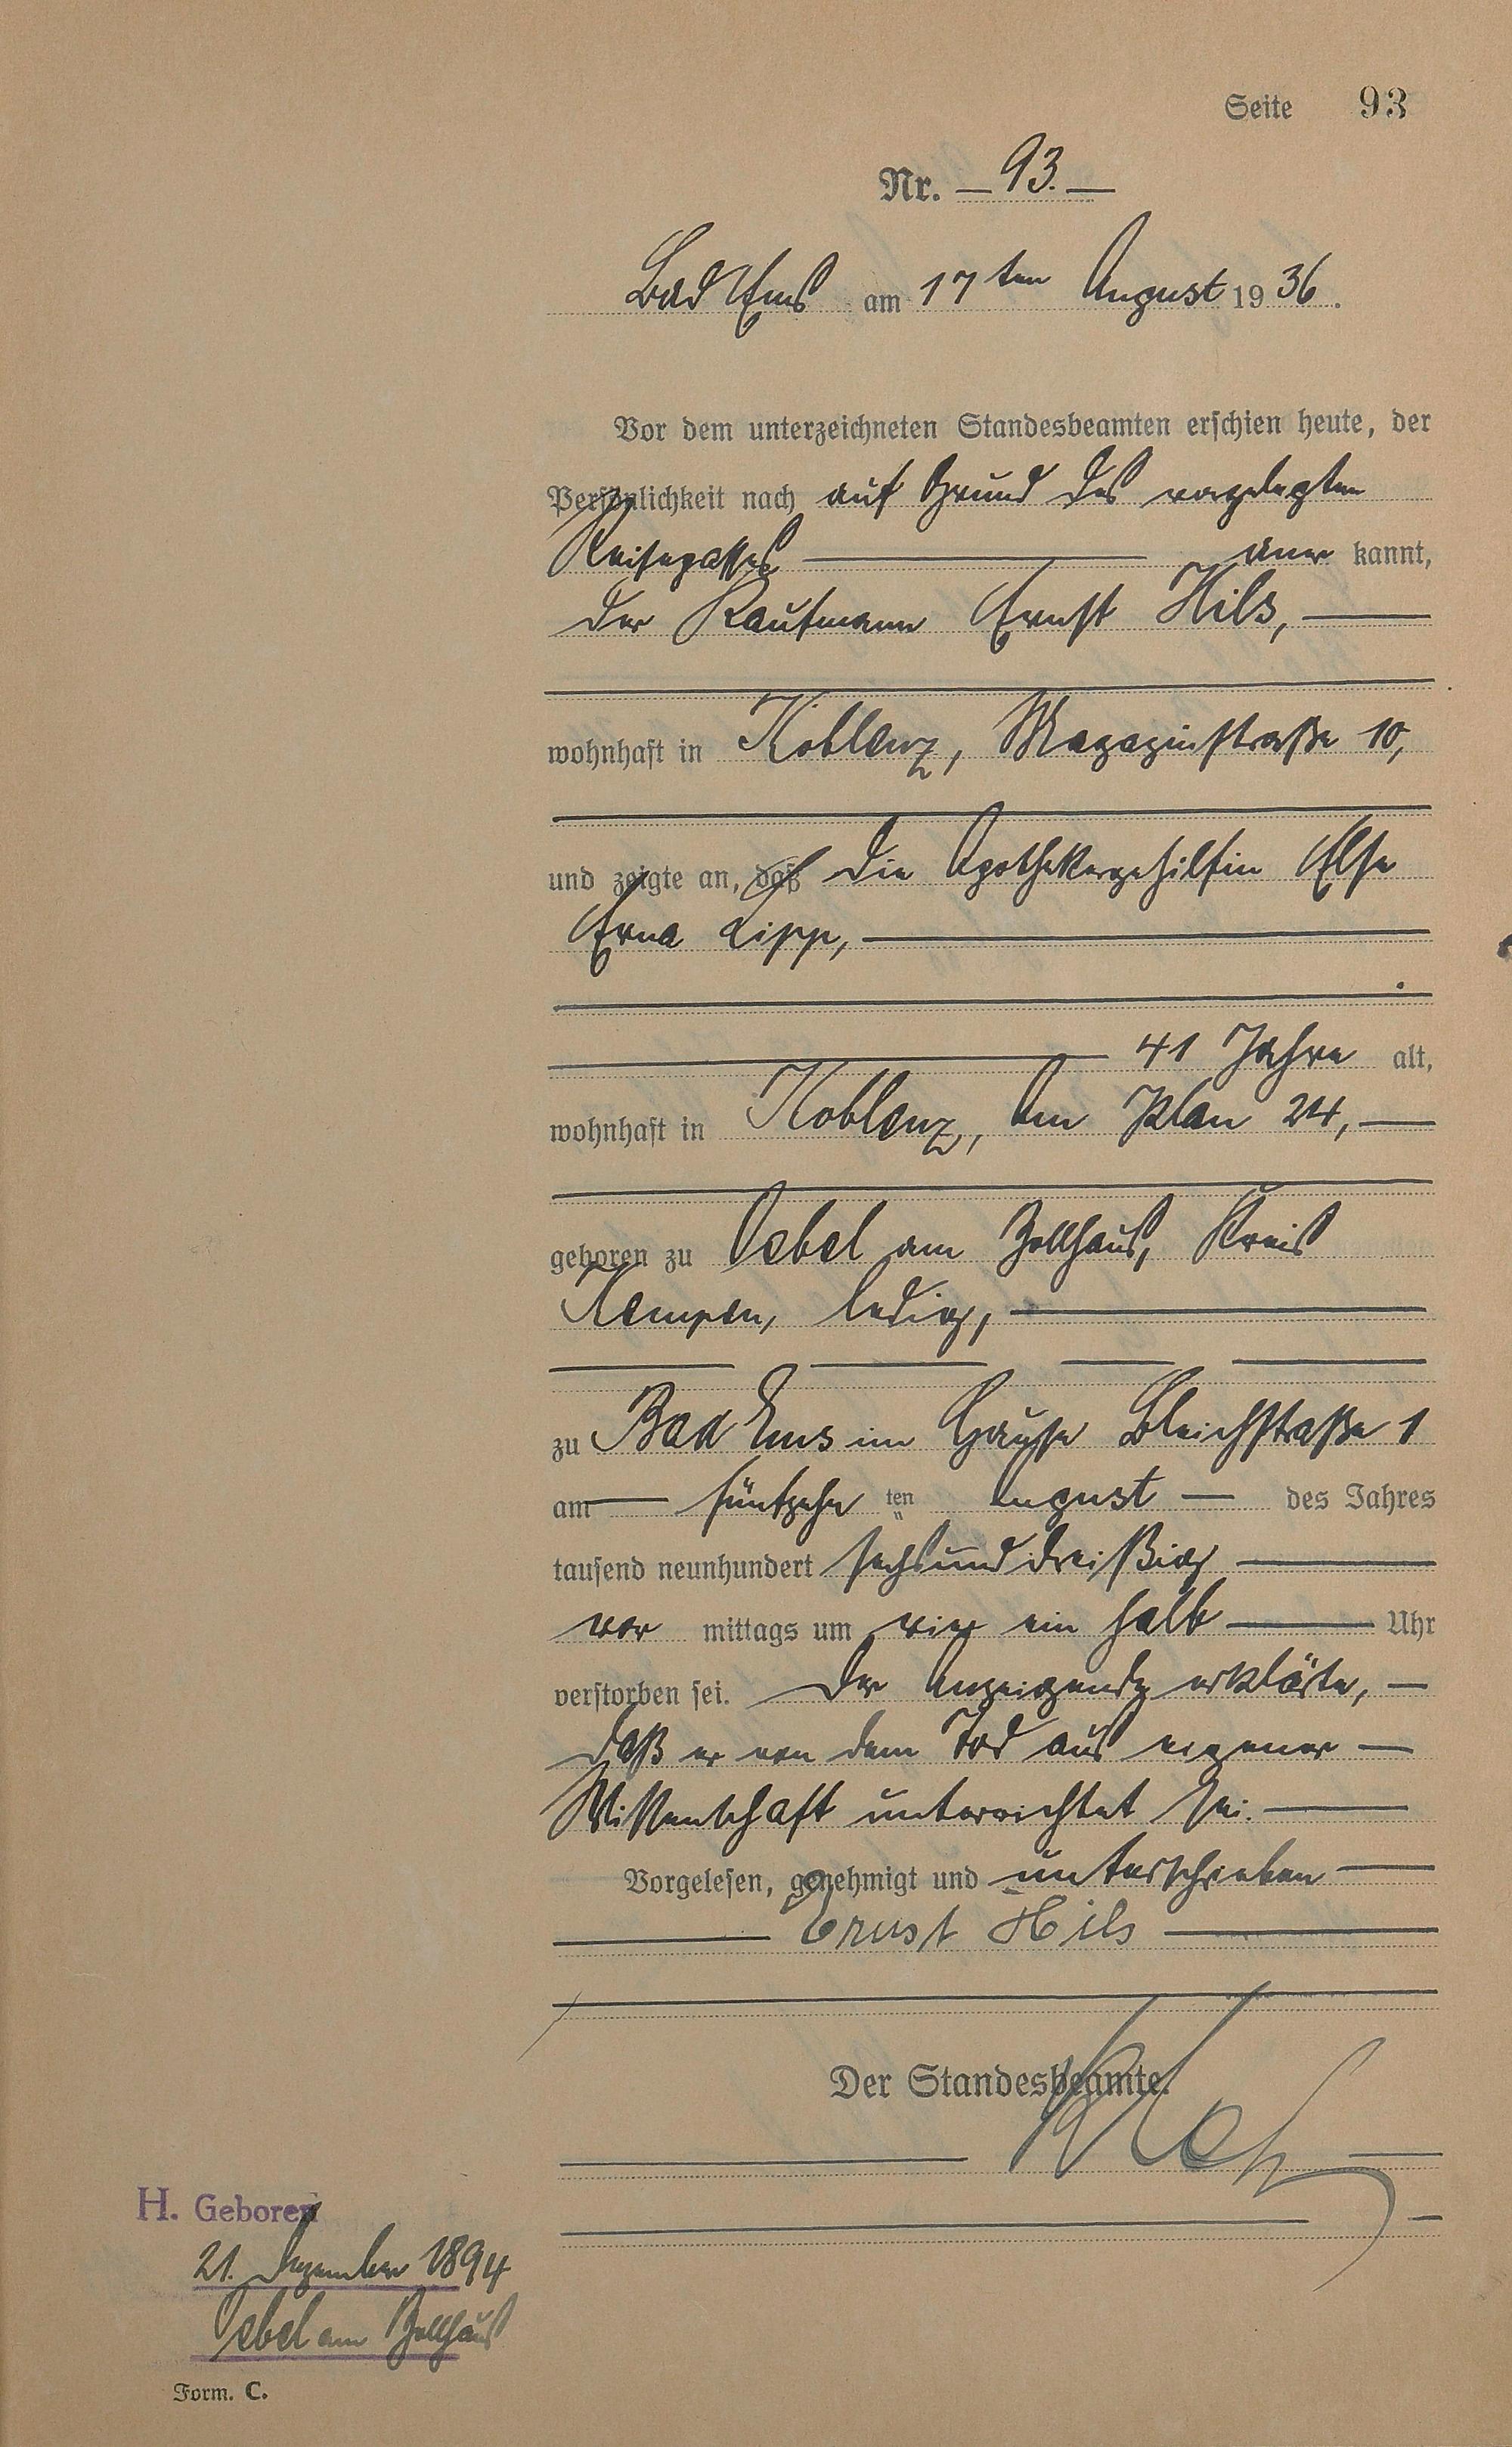 Seite 93
Nr. — 93. —
Bad Ems am 17ten August 1936.
Vor dem unterzeichneten Standesbeamten erschien heute, der
Persönlichkeit nach auf Grund des vorgelegten
Reisepasses — aner kannt,
der Kaufmann Ernst Hils, —
wohnhaft in Koblenz, Magazinstraße 10,
und zeigte an, daß die Apothekergehilfin Else
Erna Lipp, —
— 41 Jahre alt,
wohnhaft in Koblenz, Am Plan 24, —
geboren zu Oebel am Zollhaus, Kreis
Kempen, ledig, —
zu Bad Ems im Hause Bleichstraße 1
am — fünfzehn ten August — des Jahres
tausend neunhundert sechsunddreißig —
vor mittags um vier ein halb — Uhr
verstorben sei. Der Anzeigende erklärte, —
daß er von dem Tod aus eigener —
Wissenschaft unterrichtet sei. —
Vorgelesen, genehmigt und unterschrieben —
— Ernst Hils —
Der Standesbeamte.
H. Geboren
21. Dezember 1894
Oebel am Zollhaus
Form. C.